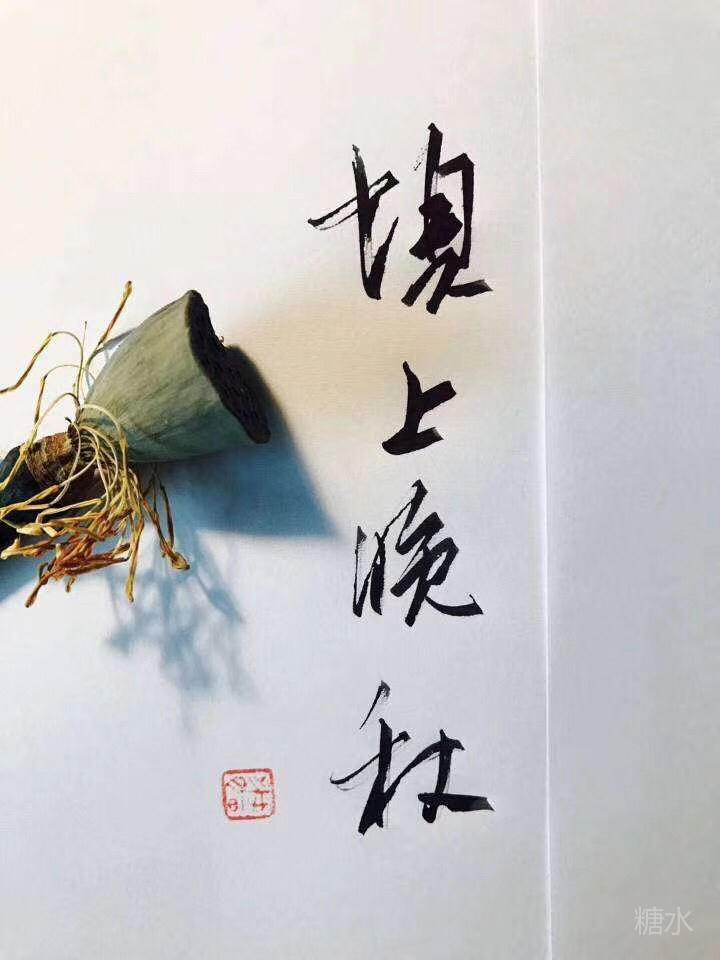 坝上晚秋
糖水